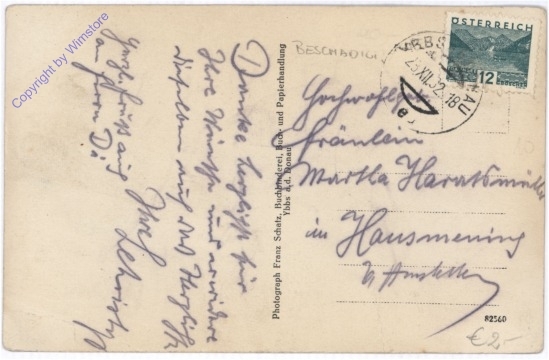 Copyright by Wimstore
Danke herzlichst für
Ihre Wünsche und erwidere
dieselben auf das Herzlichste
Ihre
an Herrn
BESCHÄDIGT
YBBS
23.XII.32.18
DONAU
e
ÖSTERREICH
12
GROSCHEN
Hochwohlgeb.
Fräulein
Martha Haratsmüller
in Hausmening
b/ Amstetten
Photograph Franz Schatz, Buchbinderei, Buch- und Papierhandlung
Ybbs a.d. Donau
82560
€ 2,-